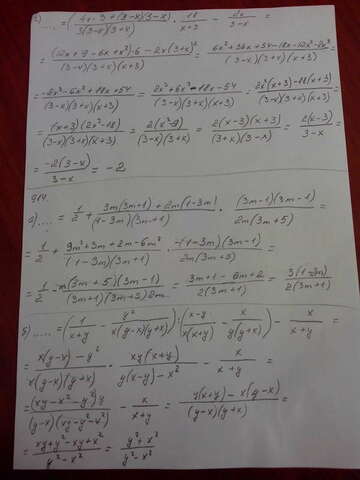 .... = (4x·3+(3-x)(3-x))/(3(3-x)(3+x)) · 18/(x+3) - 2x/(3-x) =
= ((12x+9-6x+x²)·6-2x(3+x)²)/((3-x)(3+x)(x+3)) = (6x²+36x+54-18x-12x²-2x³)/((3-x)(3+x)(x+3)) =
= (-2x³-6x²+18x+54)/((3-x)(3+x)(x+3)) = (2x³+6x²-18x-54)/((3-x)(3+x)(x+3)) = (2x²(x+3)-18(x+3))/((3-x)(3+x)(x+3)) =
= ((x+3)(2x²-18))/((3-x)(3+x)(x+3)) = (2(x²-9))/((3-x)(3+x)) = (2(x-3)(x+3))/((3+x)(3-x)) = (2(x-3))/(3-x) =
= (-2(3-x))/(3-x) = -2
а).... = 1/2 + (3m(3m+1)+2m(1-3m))/((1-3m)(3m+1)) · ((3m-1)(3m-1))/(2m(3m+5)) =
= 1/2 + (9m²+3m+2m-6m²)/((1-3m)(3m+1)) · (-(1-3m)(3m-1))/(2m(3m+5)) =
= 1/2 - (m(3m+5)(3m-1))/((3m+1)(3m+5)2m) = (3m+1-6m+2)/(2(3m+1)) = (3(1-m))/(2(3m+1))
б)..... = (1/(x+y) - y²/(x(y-x)(y+x))) : ((x-y)/(x(x+y)) - x/(y(y+x))) - x/(x+y) =
= (x(y-x)-y²)/(x(y-x)(y+x)) · (xy(x+y))/(y(x-y)-x²) - x/(x+y) =
= ((xy-x²-y²)y)/((y-x)(xy-y²-x²)) - x/(x+y) = (y(x+y)-x(y-x))/((y-x)(y+x)) =
= (xy+y²-xy+x²)/(y²-x²) = (y²+x²)/(y²-x²)